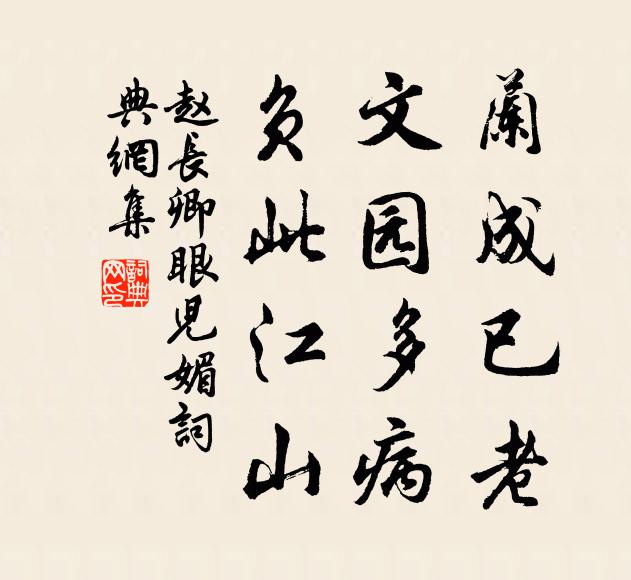 蘭成已老
文园多病
负此江山
赵長卿眼児媚詞
典網集
詞典网印